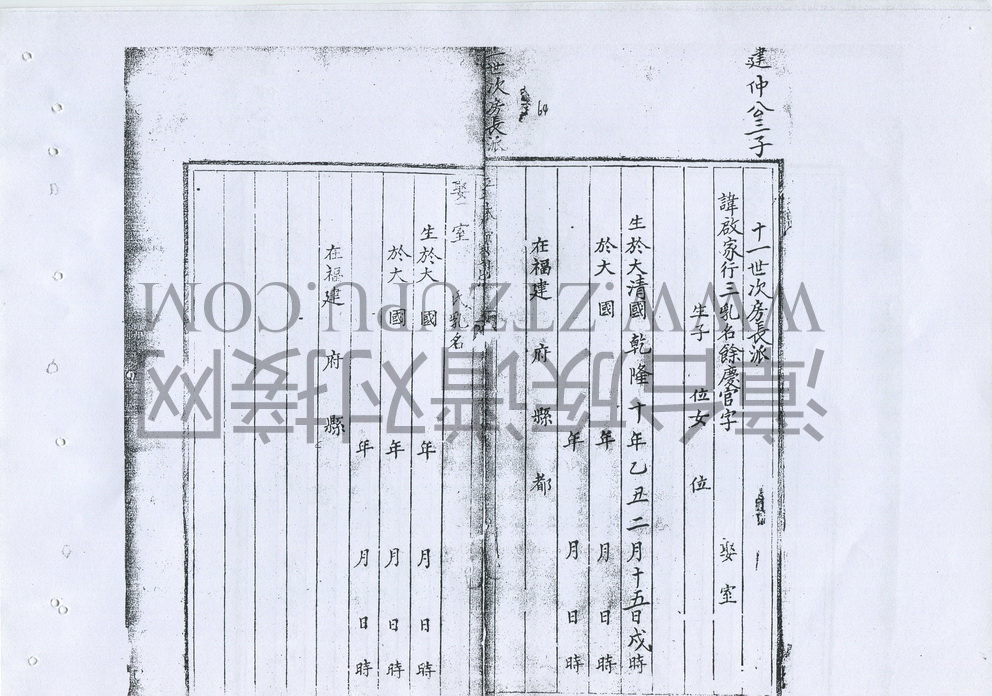 建仲公三子
十一世次房長派
諱啟家行三乳名餘慶官字 娶 室
生子 位女 位
生於大清國乾隆十年乙丑二月十五日戌時
於大 國 年 月 日 時
年 月 日 時
在福建 府 縣 都
64
一世次房長派
娶 室 氏乳名
生於大 國 年 月 日 時
於大 國 年 月 日 時
年 月 日 時
在福建 府 縣
WWW.ZTZUPU.COM
漳台族谱对接网